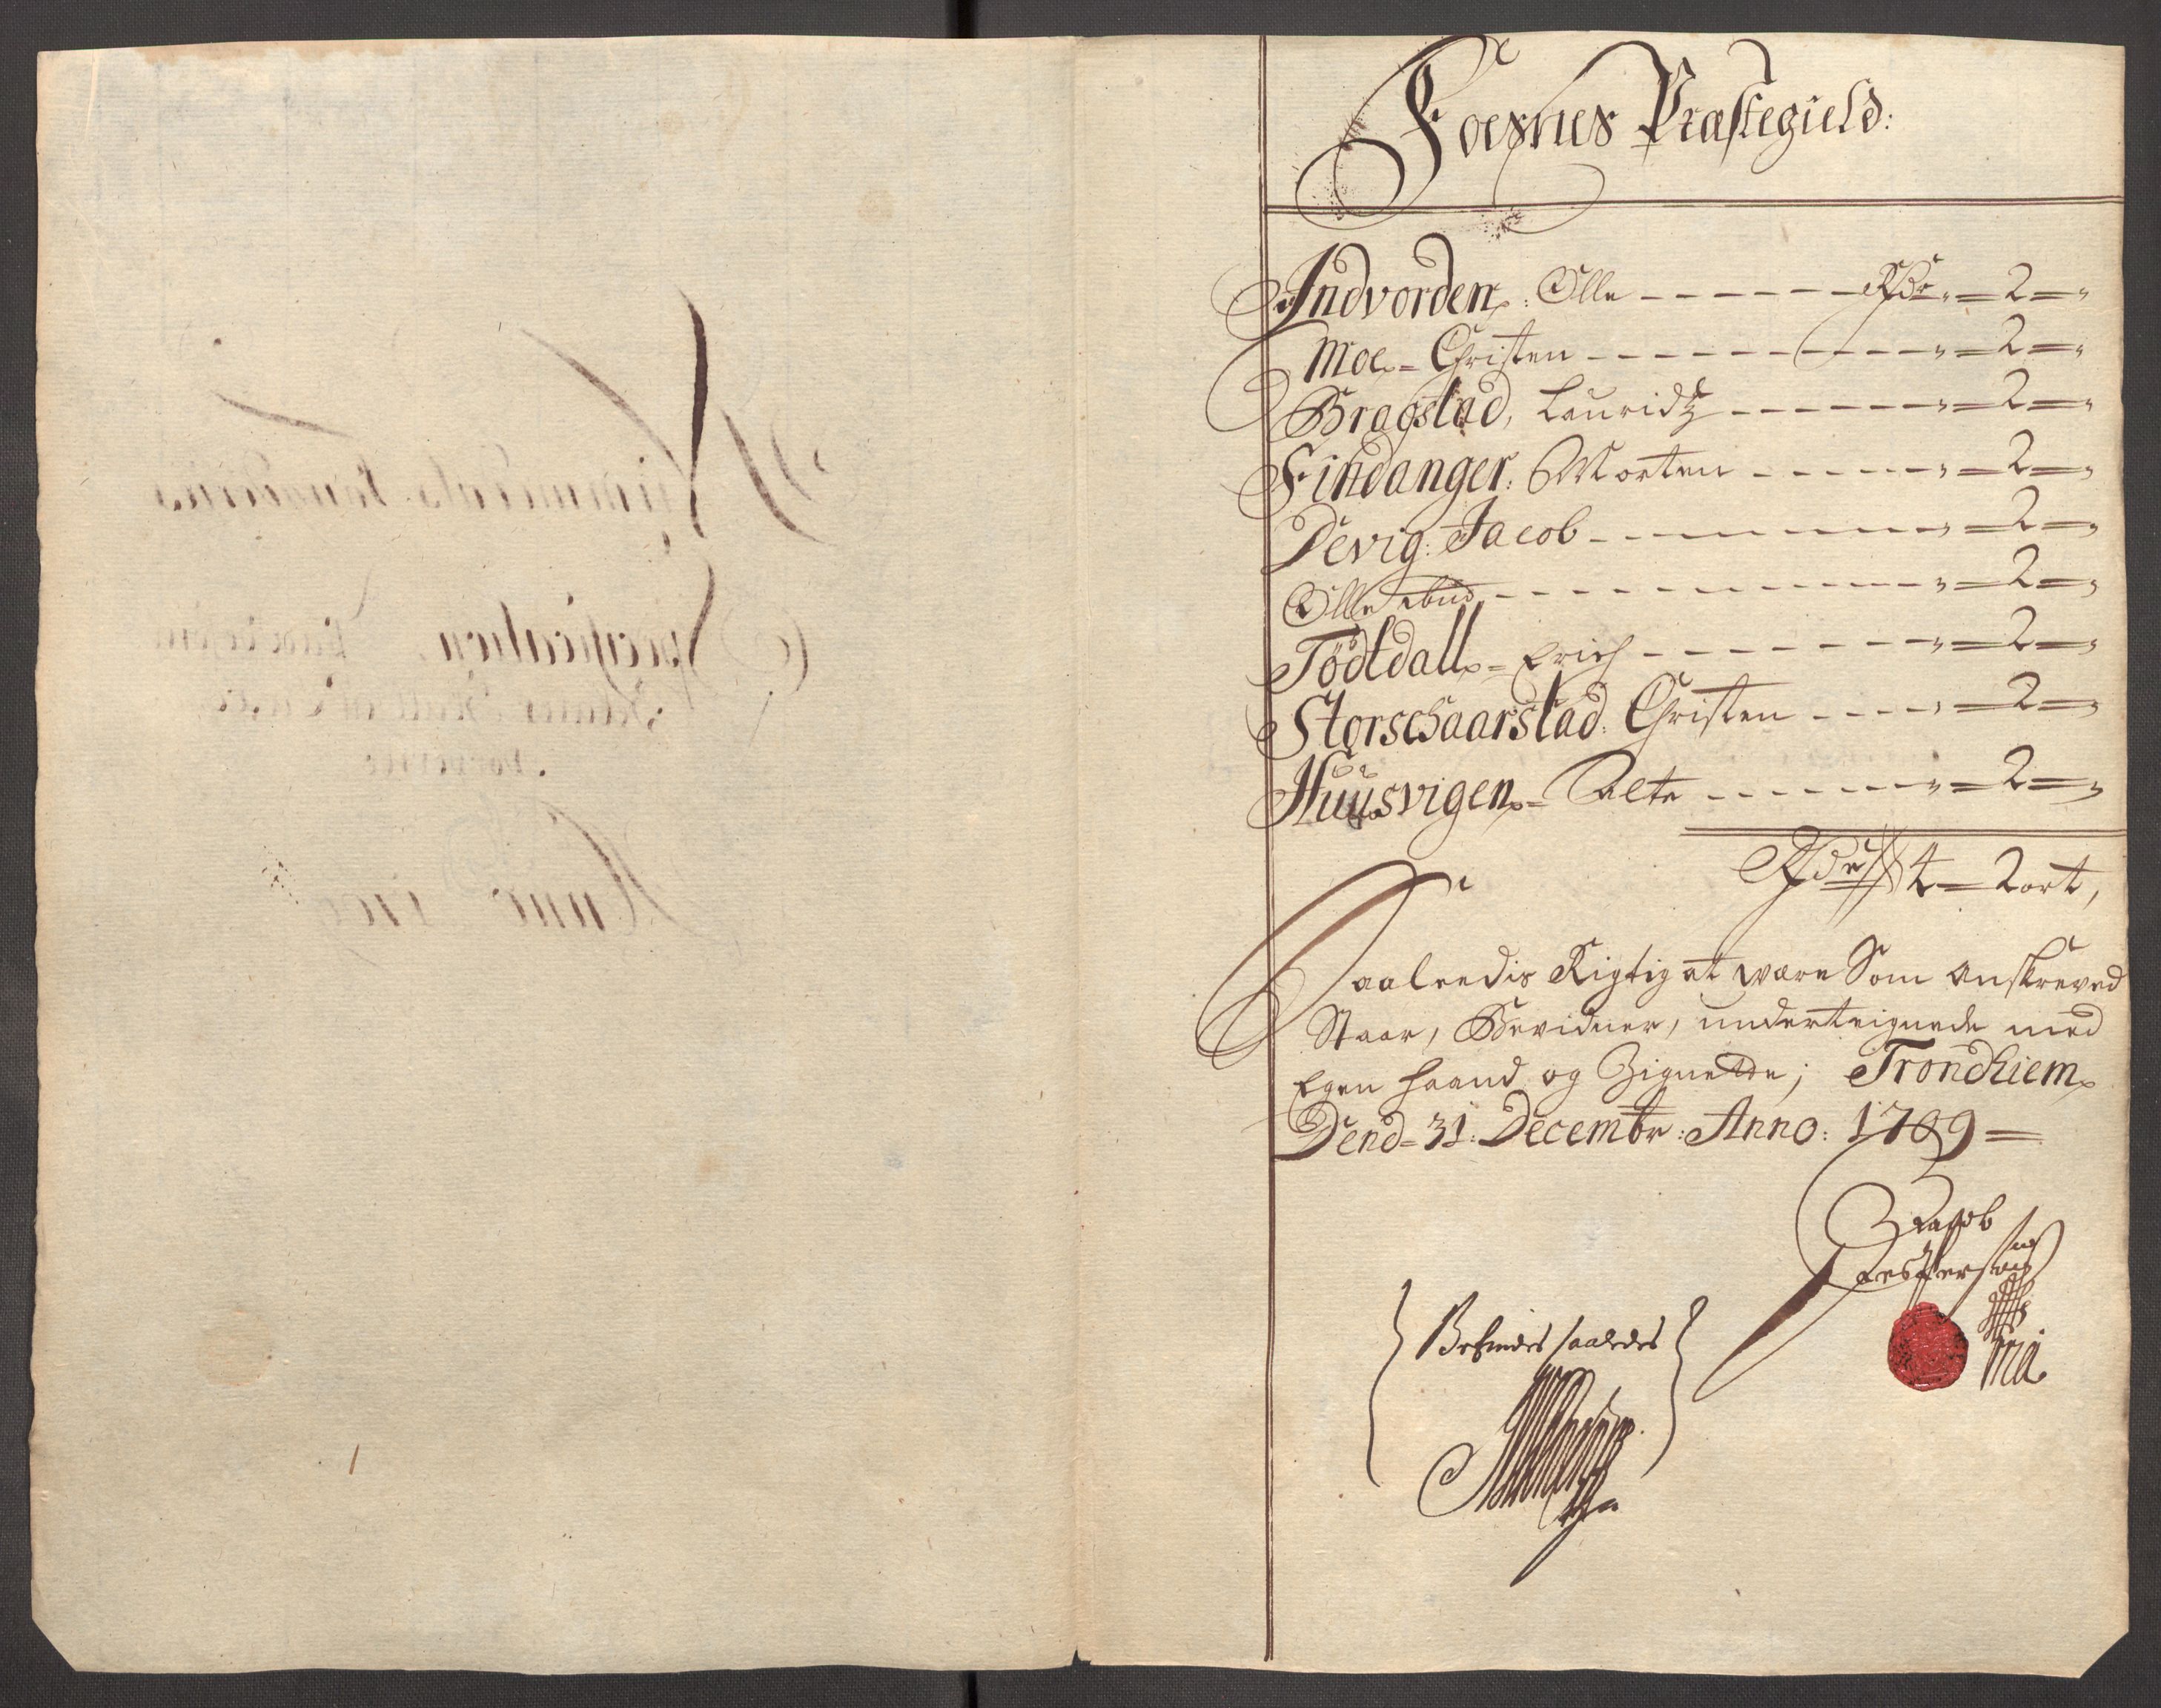 Foesnes Præstegield:
Indvorden: Olle - - - - - - Rdr „ = 2 = „
Moe = Christen - - - - - - „ = 2 = „
Bragstad, Lauridtz - - - - - - „ = 2 = „
Findanger: Morten - - - - - „ = 2 = „
Devig: Jacob - - - - - - „ = 2 = „
Olle ibid - - - - - - „ = 2 = „
Tødtdall = Erich - - - - - - „ = 2 = „
Storschaarstad: Christen - - - - „ = 2 = „
Huusvigen = - - - - - - „ = 2 = „
Rdr 4 = 2 ort,
Saaleedis Rigtig at være Som anskreved
Staar, Bevidner, underteignede med
Egen haand og Zignette; Trondhiem
Dend = 31: Decembr: Anno: 1709 =
Jacob
Jesperson
mia
Befindes saaledes